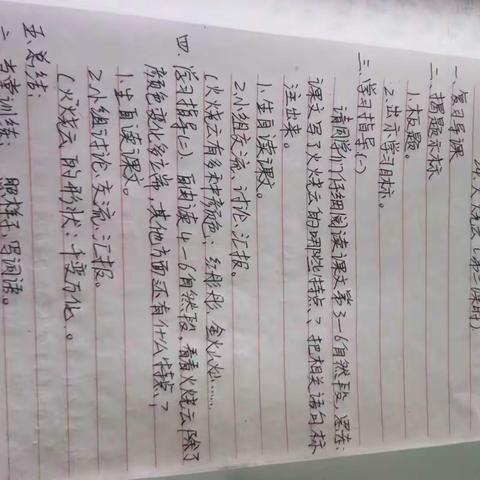 24火烧云(第二课时)
一、复习导课
二、揭题示标
1.板题。
2.出示学习目标。
三、学习指导(一)
请同学们仔细阅读课文第3-6自然段,思考:
课文写了火烧云的哪些特点?把相关语句标
注出来。
1.生自读课文。
2.小组交流、讨论、汇报。
(火烧云有多种颜色:红彤彤、金灿灿……
四、学习指导(二) 自由读4-6自然段,看看火烧云除了
颜色变化多之外,其他方面还有什么特点?
1.生自读课文。
2.小组讨论、交流、汇报。
(火烧云的形状:千变万化。)
五、总结:
六、当堂训练: 照样子,写词语。